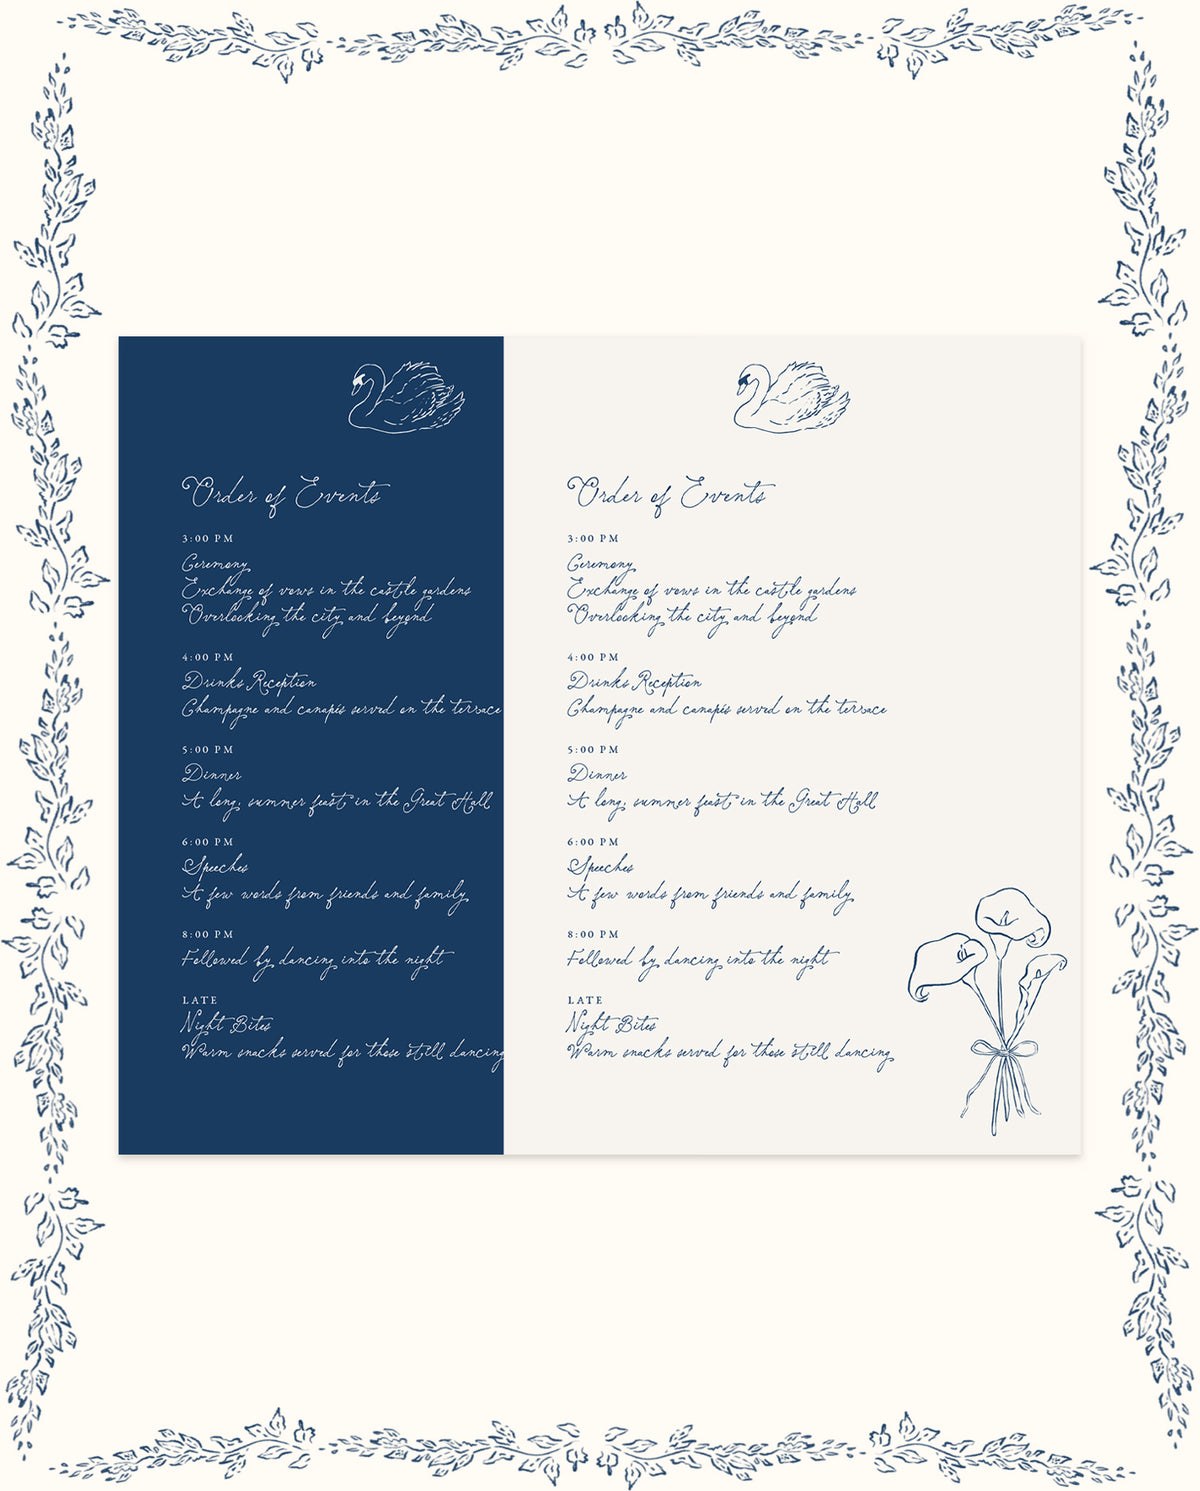 Order of Events
3:00 PM
Ceremony
Exchange of vows in the castle gardens
Overlooking the city and beyond
4:00 PM
Drinks Reception
Champagne and canapés served on the terrace
5:00 PM
Dinner
A long, summer feast in the Great Hall
6:00 PM
Speeches
A few words from friends and family
8:00 PM
Followed by dancing into the night
LATE
Night Bites
Warm snacks served for those still dancing
Order of Events
3:00 PM
Ceremony
Exchange of vows in the castle gardens
Overlooking the city and beyond
4:00 PM
Drinks Reception
Champagne and canapés served on the terrace
5:00 PM
Dinner
A long, summer feast in the Great Hall
6:00 PM
Speeches
A few words from friends and family
8:00 PM
Followed by dancing into the night
LATE
Night Bites
Warm snacks served for those still dancing